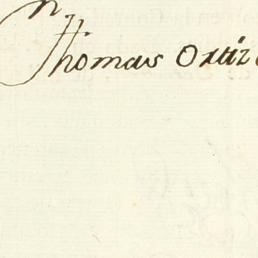 n
Thomas Ortiz